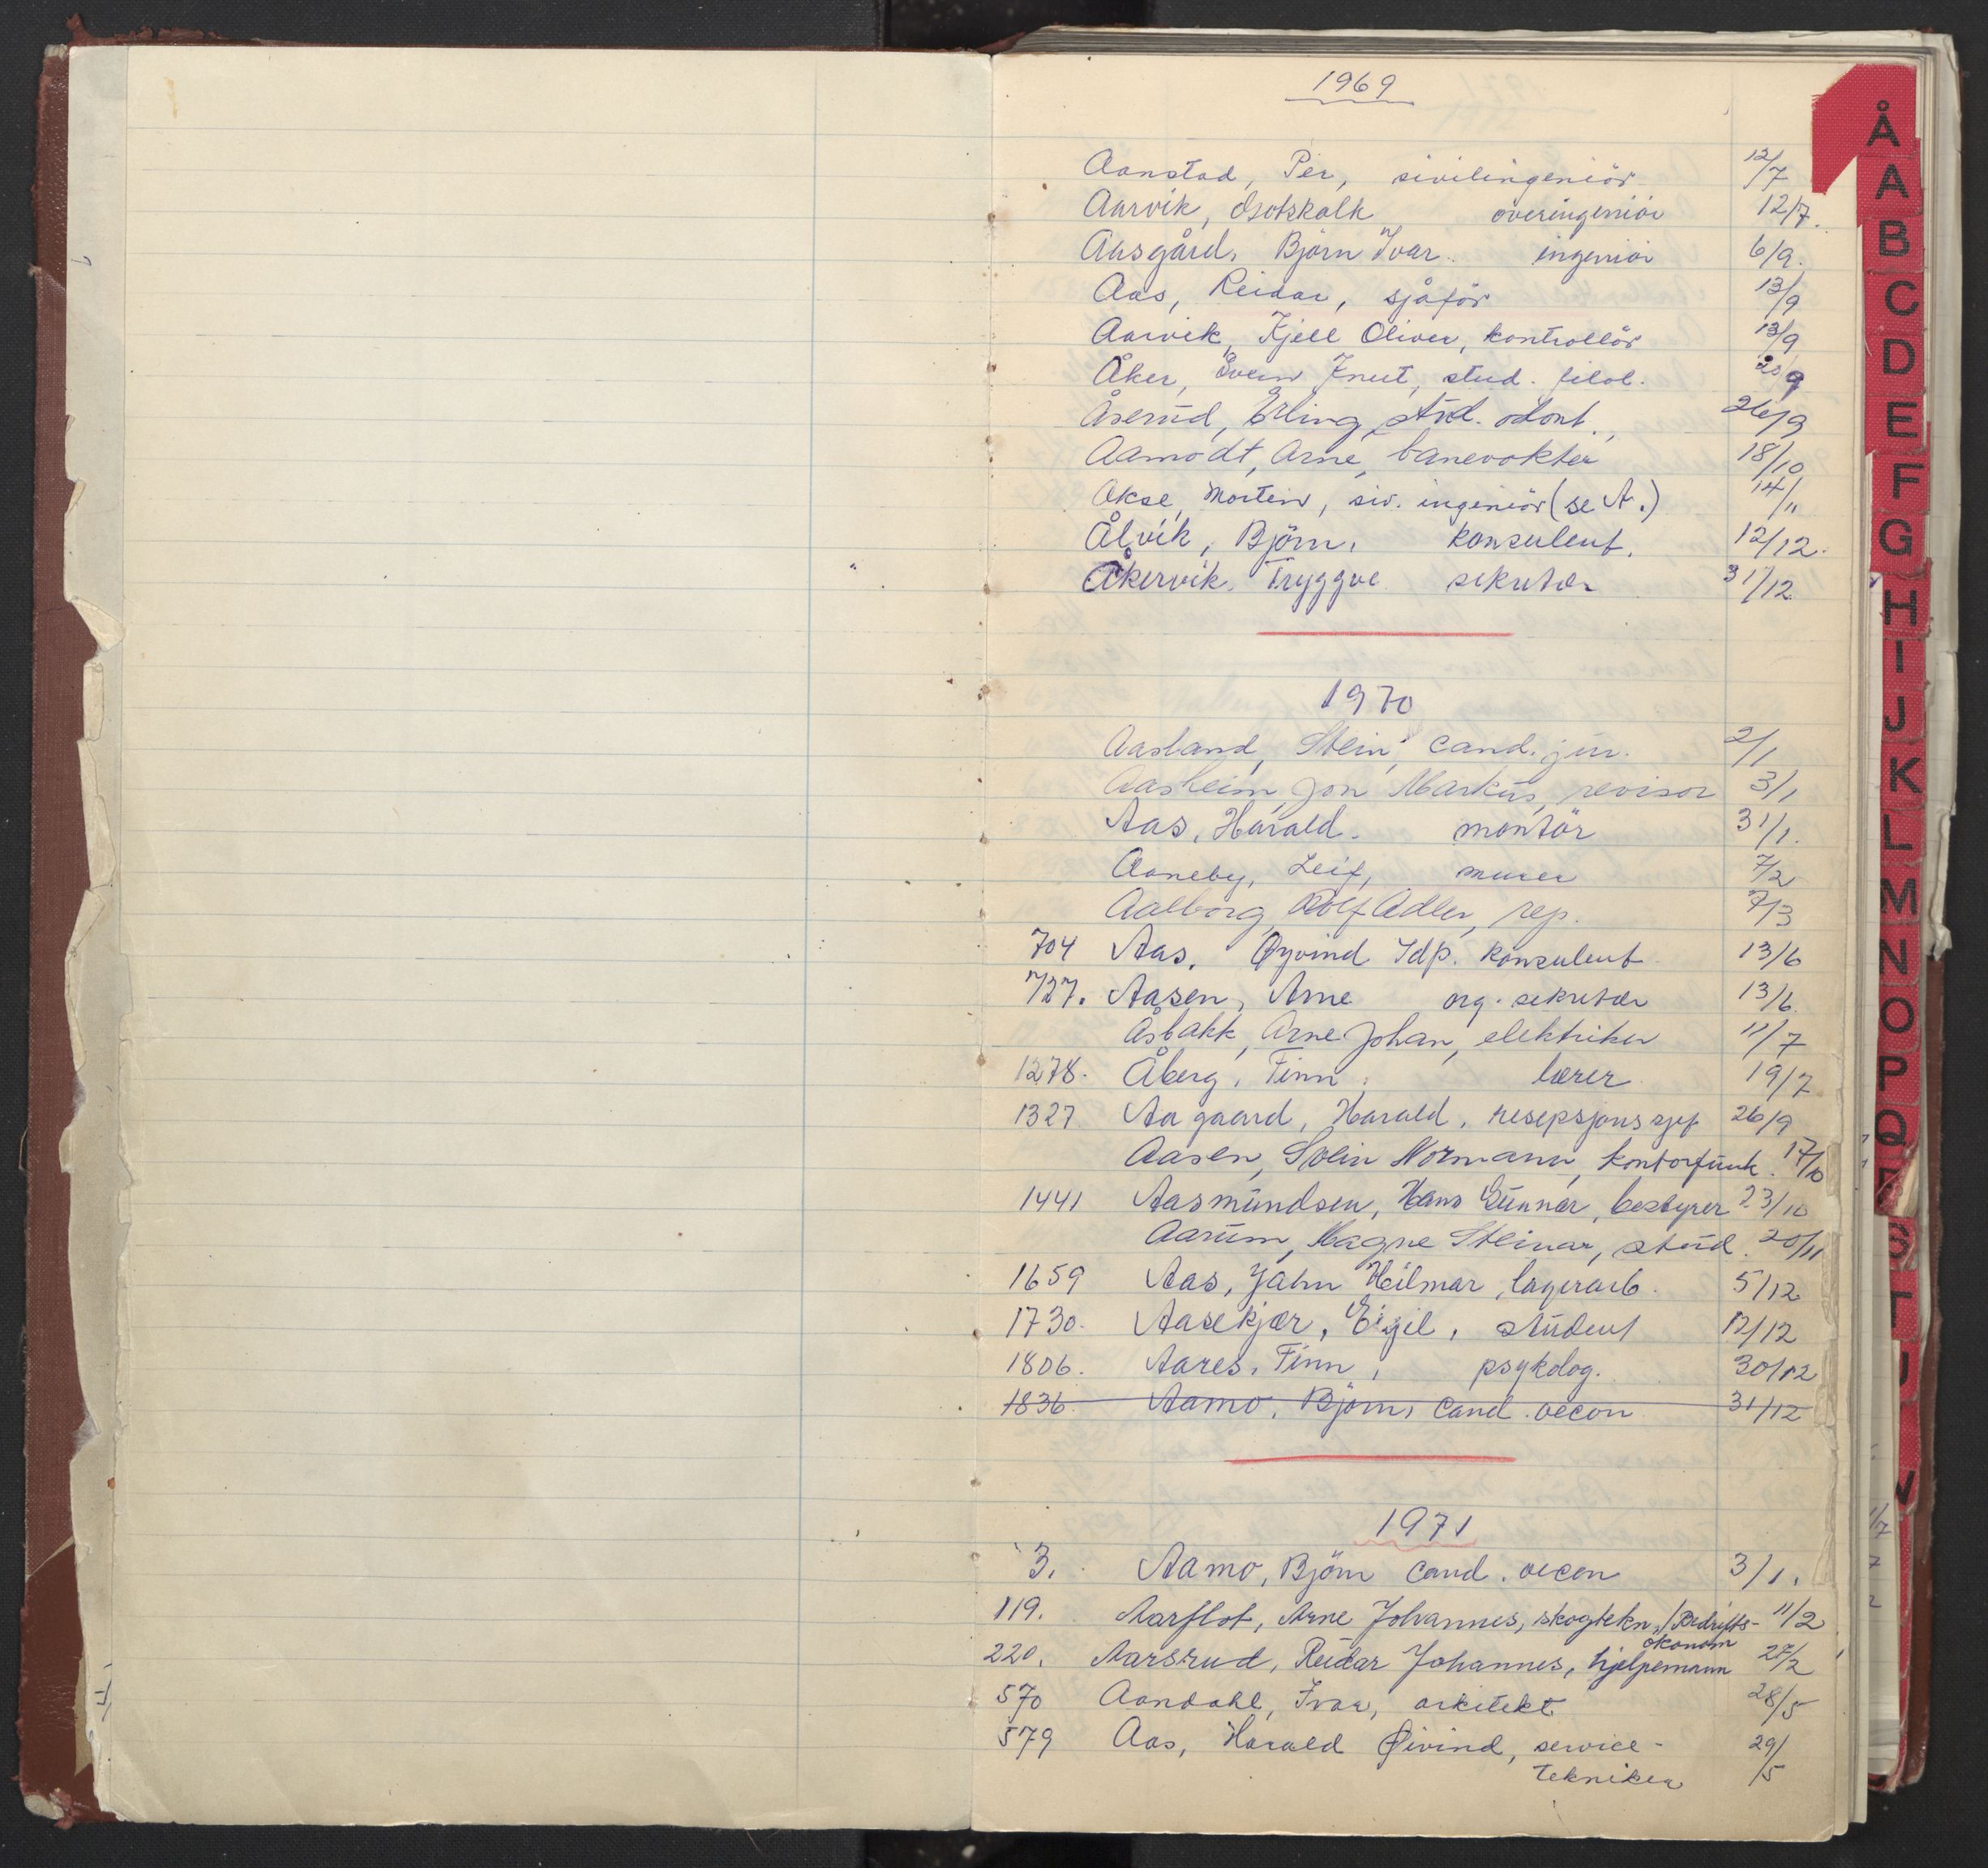 1969
Aanstad, Per, sivilingeniör 12/7
Aarvik, overingeniör 12/7.
Aasgård, Björn Ivar. ingeniör 6/9.
Aas, Reidar, sjåför 13/9
Aarvik, Kjell Oliver, kontrollör 13/9
Åker, Svein Knut, stud. filol. 20/9
Åserud, Erling, stud. odont., 26/9
Aamodt, Arne, banevokter 18/10
Akse, Morten, siv. ingeniör (se A.) 14/11
Ålvik, Björn, konsulent. 12/12.
Åkervik, Tryggve sekretær 31/12
1970
Aasland, Stein, cand. jur. 2/1
Aasheim, Jon Markus, revisor 3/1
Aas, Harald. montör 31/1.
Aaneby, Leif, murer 7/2
Aalborg, Rolf Adler, rep. 7/3
704 Aas, Øyvind Idp. konsulent 13/6
727. Aasen, Arne org. sekretær 13/6.
Åsbakk, Arne Johan, elektriker 11/7
1278. Åberg, Finn, lærer 19/7
1327. Aagaard, Harald, resepsjonssjef 26/9
Aasen, Svein Normann, kontorfunk. 17/10
1441 Aasmundsen, Hans Gunnar, bestyrer 23/10
Aarum, Magne Steinar, stud. 20/11
1659 Aas, Jahn Hilmar, lagerarb. 5/12
1730. Aasekjær, Eigil, student 12/12
1806. Aares, Finn, psykolog. 30/12
1836 Aamo, Björn, cand. oecon 31/12
1971
3. Aamo, Björn cand. oecon 3/1.
119. Aarflot, Arne Johannes, skogtekn./Bedrifts- 11/2
økonom
220. Aarsrud, Reidar Johannes, hjelpemann 27/2
570 Aandahl, Ivar, arkitekt 28/5
579 Aas, Harald Øivind, service- 29/5
tekniker
Å
A
B
C
D
E
F
G
H
I
J
K
L
M
N
O
P
Q